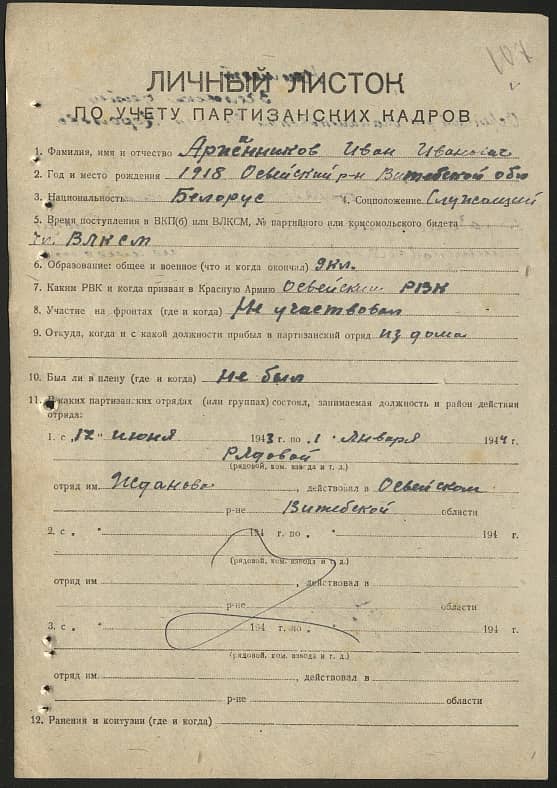 ЛИЧНЫЙ ЛИСТОК
ПО УЧЕТУ ПАРТИЗАНСКИХ КАДРОВ
1. Фамилия, имя и отчество Иван Иванович
2. Год и место рождения 1918 Освейский р-н Витебской обл
3. Национальность Белорус 4. Соцположение Служащий
5. Время поступления в ВКП(б) или ВЛКСМ, № партийного или комсомольского билета
чл. ВЛКСМ
6. Образование: общее и военное (что и когда окончил) 9 кл.
7. Каким РВК и когда призван в Красную Армию Освейским РВК
8. Участие на фронтах (где и когда) Не участвовал
9. Откуда, когда и с какой должности прибыл в партизанский отряд из дома
10. Был ли в плену (где и когда) Не был
11. В каких партизанских отрядах (или группах) состоял, занимаемая должность и район действия
отряда:
1. с „17" июня 1943 г. по „1" января 1944 г.
Рядовой
(рядовой, ком. взвода и т. д.)
отряд им. Жданова, действовал в Освейском
р-не Витебской области
2. с „ " 194 г. по „ " 194 г.
(рядовой, ком. взвода и т. д.)
отряд им , действовал в
р-не области
3. с „ " 194 г. по „ " 194 г.
(рядовой, ком. взвода и т. д.)
отряд им. , действовал в
р-не области
12. Ранения и контузии (где и когда)